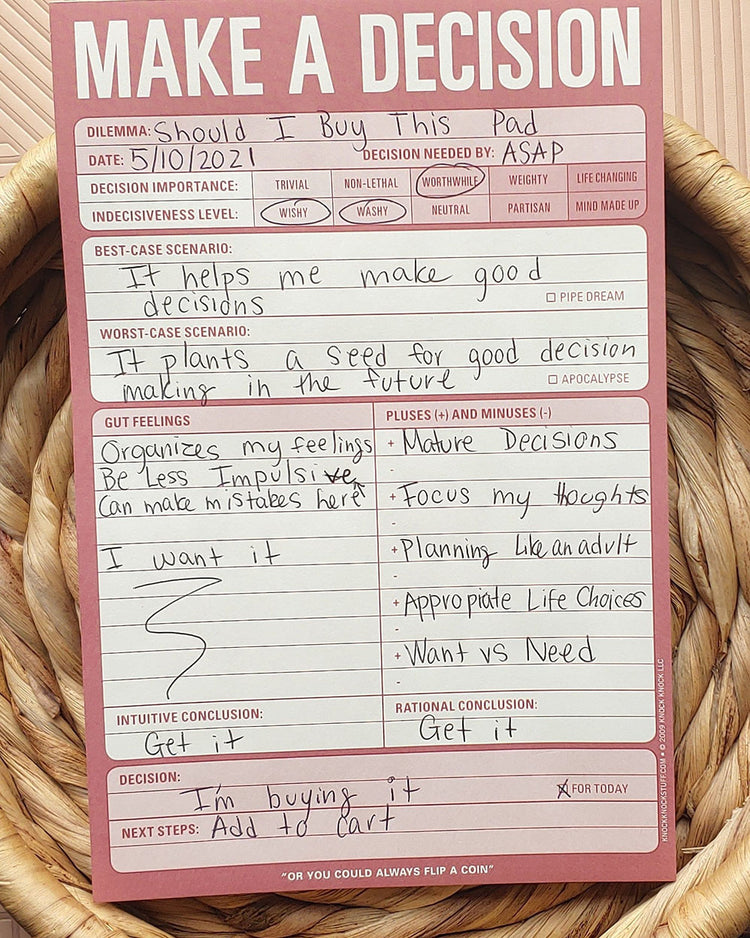 MAKE A DECISION
DILEMMA: Should I Buy This Pad
DATE: 5/10/2021 DECISION NEEDED BY: ASAP
DECISION IMPORTANCE: TRIVIAL NON-LETHAL WORTHWHILE WEIGHTY LIFE CHANGING
INDECISIVENESS LEVEL: WISHY WASHY NEUTRAL PARTISAN MIND MADE UP
BEST-CASE SCENARIO:
It helps me make good
decisions
PIPE DREAM
WORST-CASE SCENARIO:
It plants a seed for good decision
making in the future
APOCALYPSE
GUT FEELINGS
Organizes my feelings
Be Less Impulsive
Can make mistakes here
I want it
PLUSES (+) AND MINUSES (-)
+ Mature Decisions
-
+ Focus my thoughts
-
+ Planning Like an adult
-
+ Appropiate Life Choices
-
+ Want vs Need
-
INTUITIVE CONCLUSION:
Get it
RATIONAL CONCLUSION:
Get it
DECISION:
I'm buying it
FOR TODAY
NEXT STEPS: Add to cart
"OR YOU COULD ALWAYS FLIP A COIN"
KNOCKKNOCKSTUFF.COM • © 2009 KNOCK KNOCK LLC